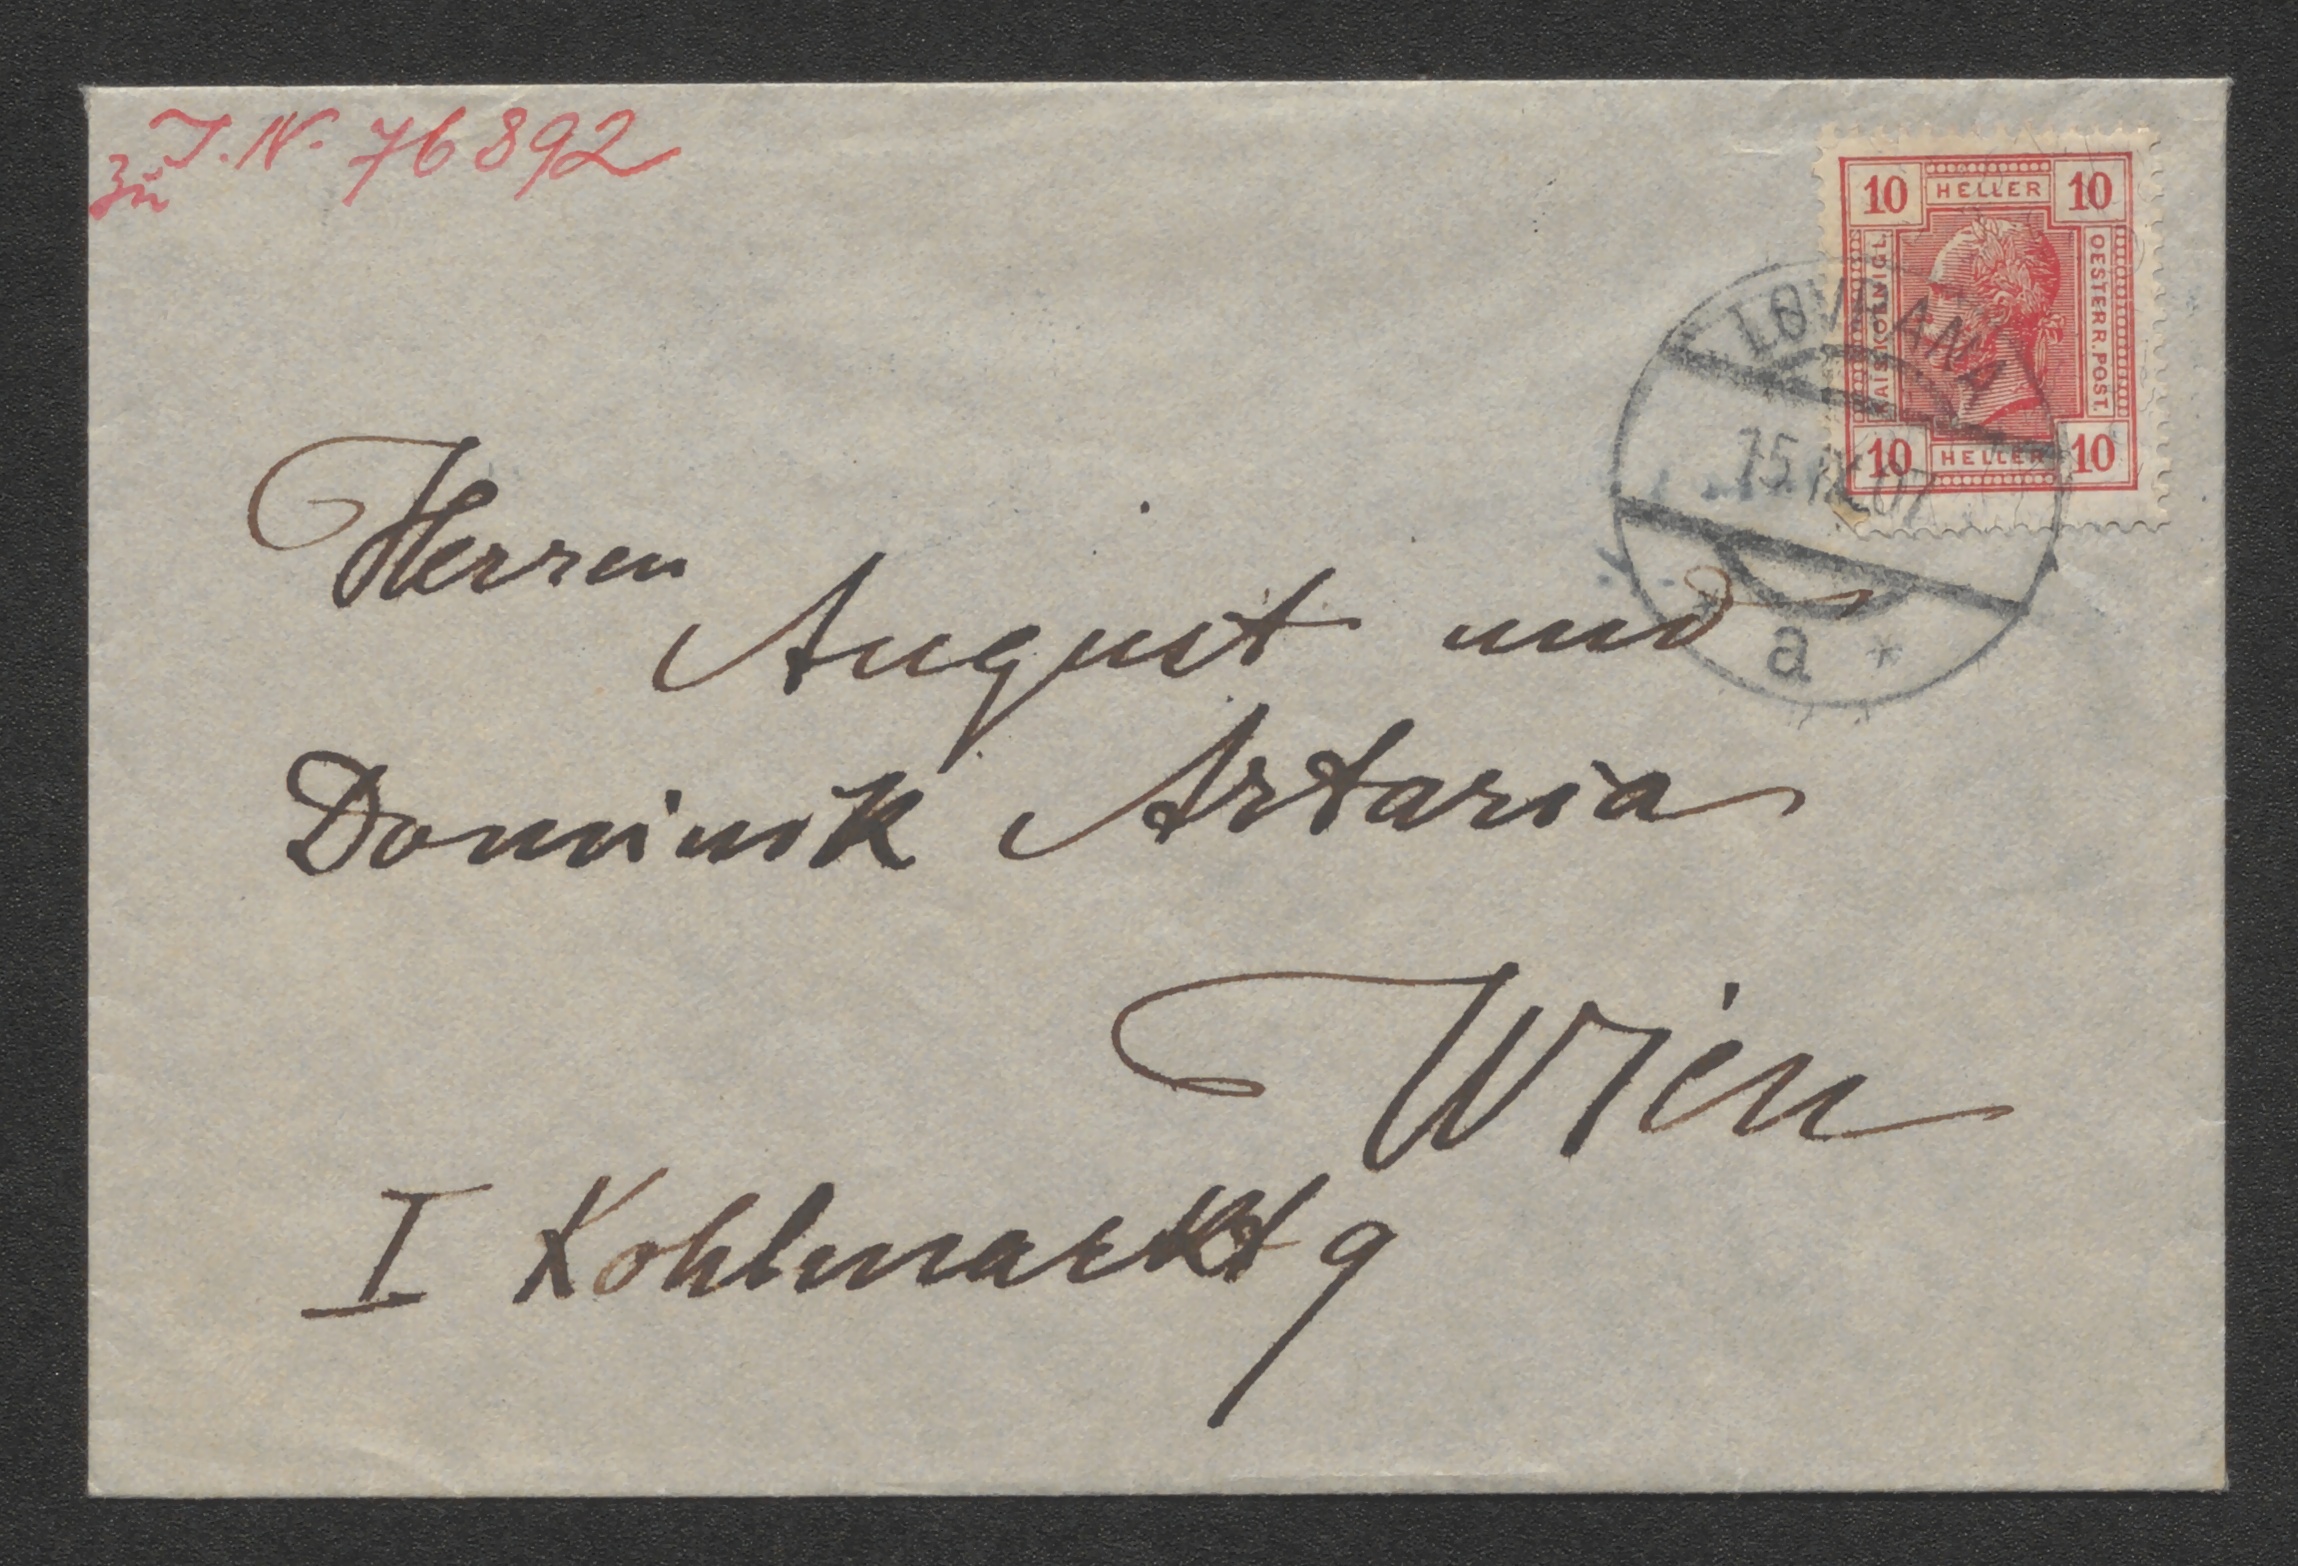 zu I.N. 76892
10 HELLER 10
KAIS. KOENIGL.
OESTERR. POST.
10 HELLER 10
LOVRANA
15.IX.07
a *
Herren
August und
Dominik Artaria
Wien
I Kohlmarkt 9